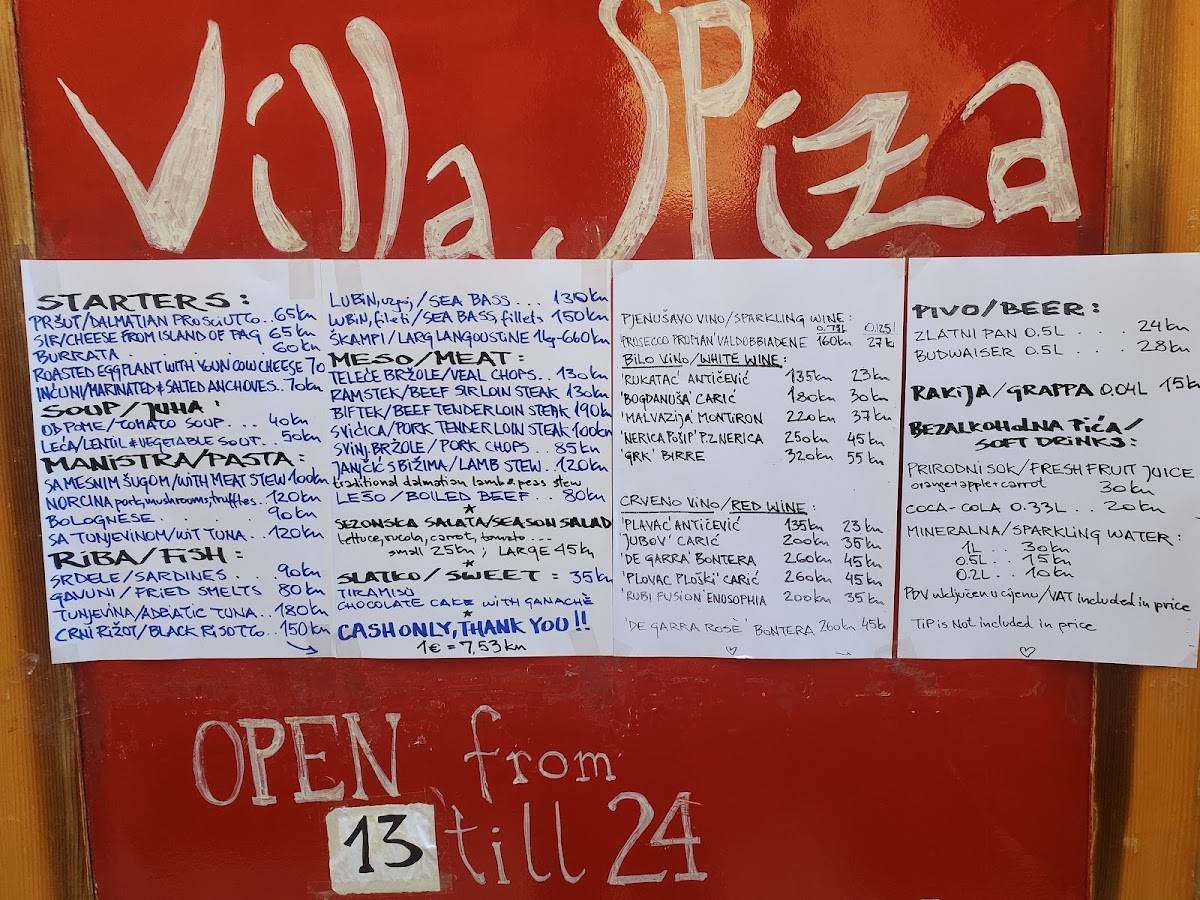 Villa Spiza
STARTERS:
PRŠUT/DALMATIAN PROSCIUTTO.. 65kn
SIR/CHEESE FROM ISLAND OF PAG 65kn
BURRATA . . . . 60kn
ROASTED EGGPLANT WITH YOUN COW CHEESE 70
INĆUNI/MARINATED & SALTED ANCHOVES.. 70kn
SOUP/JUHA:
OD POME/TOMATO SOUP ... 40kn
LEĆA/LENTIL & VEGETABLE SOUT.. 50kn
MANISTRA/PASTA:
SA MESNIM ŠUGOM/WITH MEAT STEW 100kn
NORCINA pork, mushrooms, truffles.. 120kn
BOLOGNESE . . . 90kn
SA TUNJEVINOM/WIT TUNA.. 120kn
RIBA/FISH:
SRDELE/SARDINES . . . 90kn
GAVUNI/FRIED SMELTS 80kn
TUNJEVINA/ADRIATIC TUNA.. 180kn
CRNI RIŽOT/BLACK RISOTTO.. 150kn
LUBIN, /SEA BASS ... 130kn
LUBIN, fileti/SEA BASS, fillets 150kn
ŠKAMPI/LARG LANGOUSTINE 1kg-660kn
MESO/MEAT:
TELEĆE BRŽOLE/VEAL CHOPS.. 130kn
RAMSTEK/BEEF SIRLOIN STEAK 130kn
BIFTEK/BEEF TENDERLOIN STEAK 190kn
SVIĆICA/PORK TENDERLOIN STEAK 100kn
SVINJ. BRŽOLE/PORK CHOPS.. 85kn
JANJČIĆ S BIŽIMA/LAMB STEW.. 120kn
traditional dalmatian lamb & peas stew
LEŠO/BOILED BEEF.. 80kn
SEZONSKA SALATA/SEASON SALAD
lettuce, rucola, carrot, tomato ...
small 25kn; LARGE 45kn
SLATKO/SWEET: 35kn
TIRAMISU
CHOCOLATE CAKE WITH GANACHÈ
CASH ONLY, THANK YOU!!
1€ = 7,53kn
PJENUŠAVO VINO/SPARKLING WINE:
0.75L 0.125l
PROSECCO PROMAN' VALDOBBIADENE 160kn 27k
BILO VINO/WHITE WINE:
'RUKATAC' ANTIČEVIĆ 135kn 23kn
'BOGDANUŠA' CARIĆ 180kn 30kn
'MALVAZIJA' MONTIRON 220kn 37kn
'NERICA POŠIP' P.Z NERICA 250kn 45kn
'GRK' BIRRE 320kn 55kn
CRVENO VINO/RED WINE:
'PLAVAC' ANTIČEVIĆ 135kn 23kn
'JUBOV' CARIĆ 200kn 35kn
'DE GARRA' BONTERA 260kn 45kn
'PLOVAC PLOŠKI' CARIĆ 260kn 45kn
'RUBI FUSION' ENOSOPHIA 200kn 35kn
'DE GARRA ROSÈ' BONTERA 260kn 45k
PIVO/BEER:
ZLATNI PAN 0.5L . . . . 24kn
BUDWAISER 0.5L . . . . 28kn
RAKIJA/GRAPPA 0.04L 15kn
BEZALKOHOLNA PIĆA/
SOFT DRINKS:
PRIRODNI SOK/FRESH FRUIT JUICE
orange+apple+carrot 30kn
COCA-COLA 0.33L . . 20kn
MINERALNA/SPARKLING WATER:
1L . . 30kn
0.5L . . 15kn
0.2L . . 10kn
PDV uključen u cijenu/VAT included in price
TIP is Not included in price
OPEN from
13 till 24